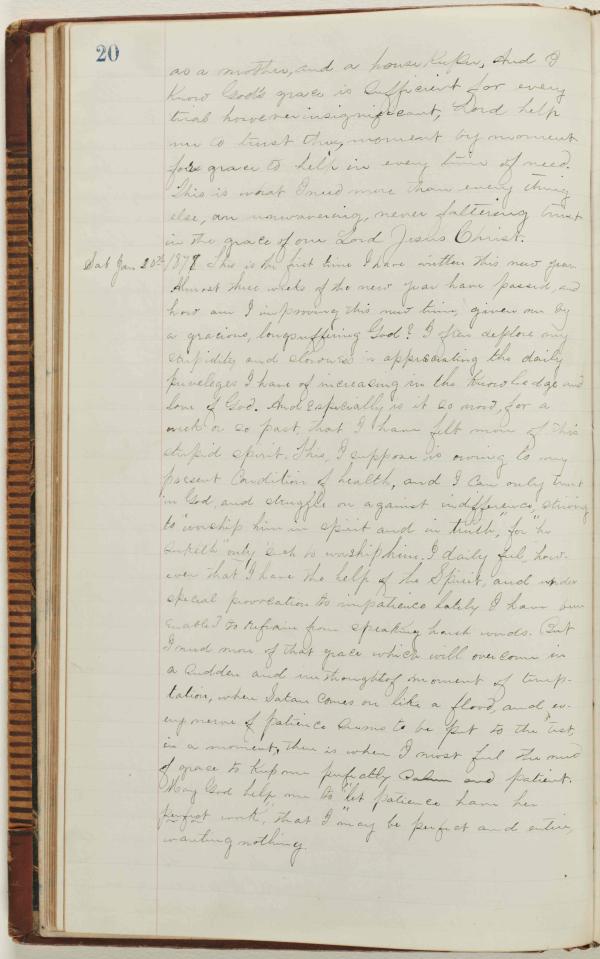 20
as a mother, and a house keeper, And I
know God's grace is sufficient for every
trial however insignificant, Lord help
me to trust thee, moment by moment
for grace to help in every time of need.
This is what I need more than every thing
else, an unwavering, never faltering trust
in the grace of our Lord Jesus Christ.
Sat Jan 20th 1877 This is the first time I have written this new year.
Almost three weeks of the new year have passed, and
how am I improving this new time, given me by
a gracious, longsuffering God? I often deplore my
stupidity and slowness in appreciating the daily
priveleges I have of increasing in the knowledge and
love of God. And especially is it so now, for a
week or so past, that I have felt more of this
stupid spirit. This, I suppose is owing to my
present condition of health, and I can only trust
in God, and struggle on against indifference, striving
to "worship him in spirit and in truth," for "he
seeketh" only "such to worship him." I daily feel, how-
ever that I have the help of the Spirit, and under
special provocation to impatience lately I have been
enabled to refrain from speaking harsh words. But
I need more of that grace which will overcome in
a sudden and unthought of moment of temp-
tation, when Satan comes on like a flood, and ev-
ery nerve of patience seems to be put to the test,
in a moment, then is when I most feel the need
of grace to keep me perfectly calm and patient.
May God help me to "let patience have her
perfect work," that I "may be perfect and entire,
wanting nothing